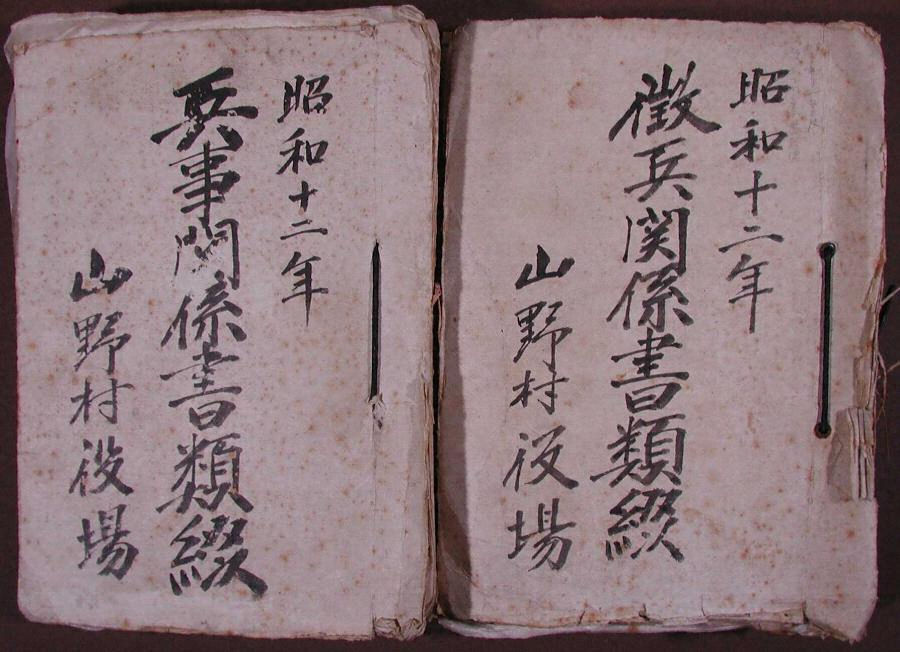 昭和十二年
徴兵関係書類綴
山野村役場
昭和十二年
兵事関係書類綴
山野村役場